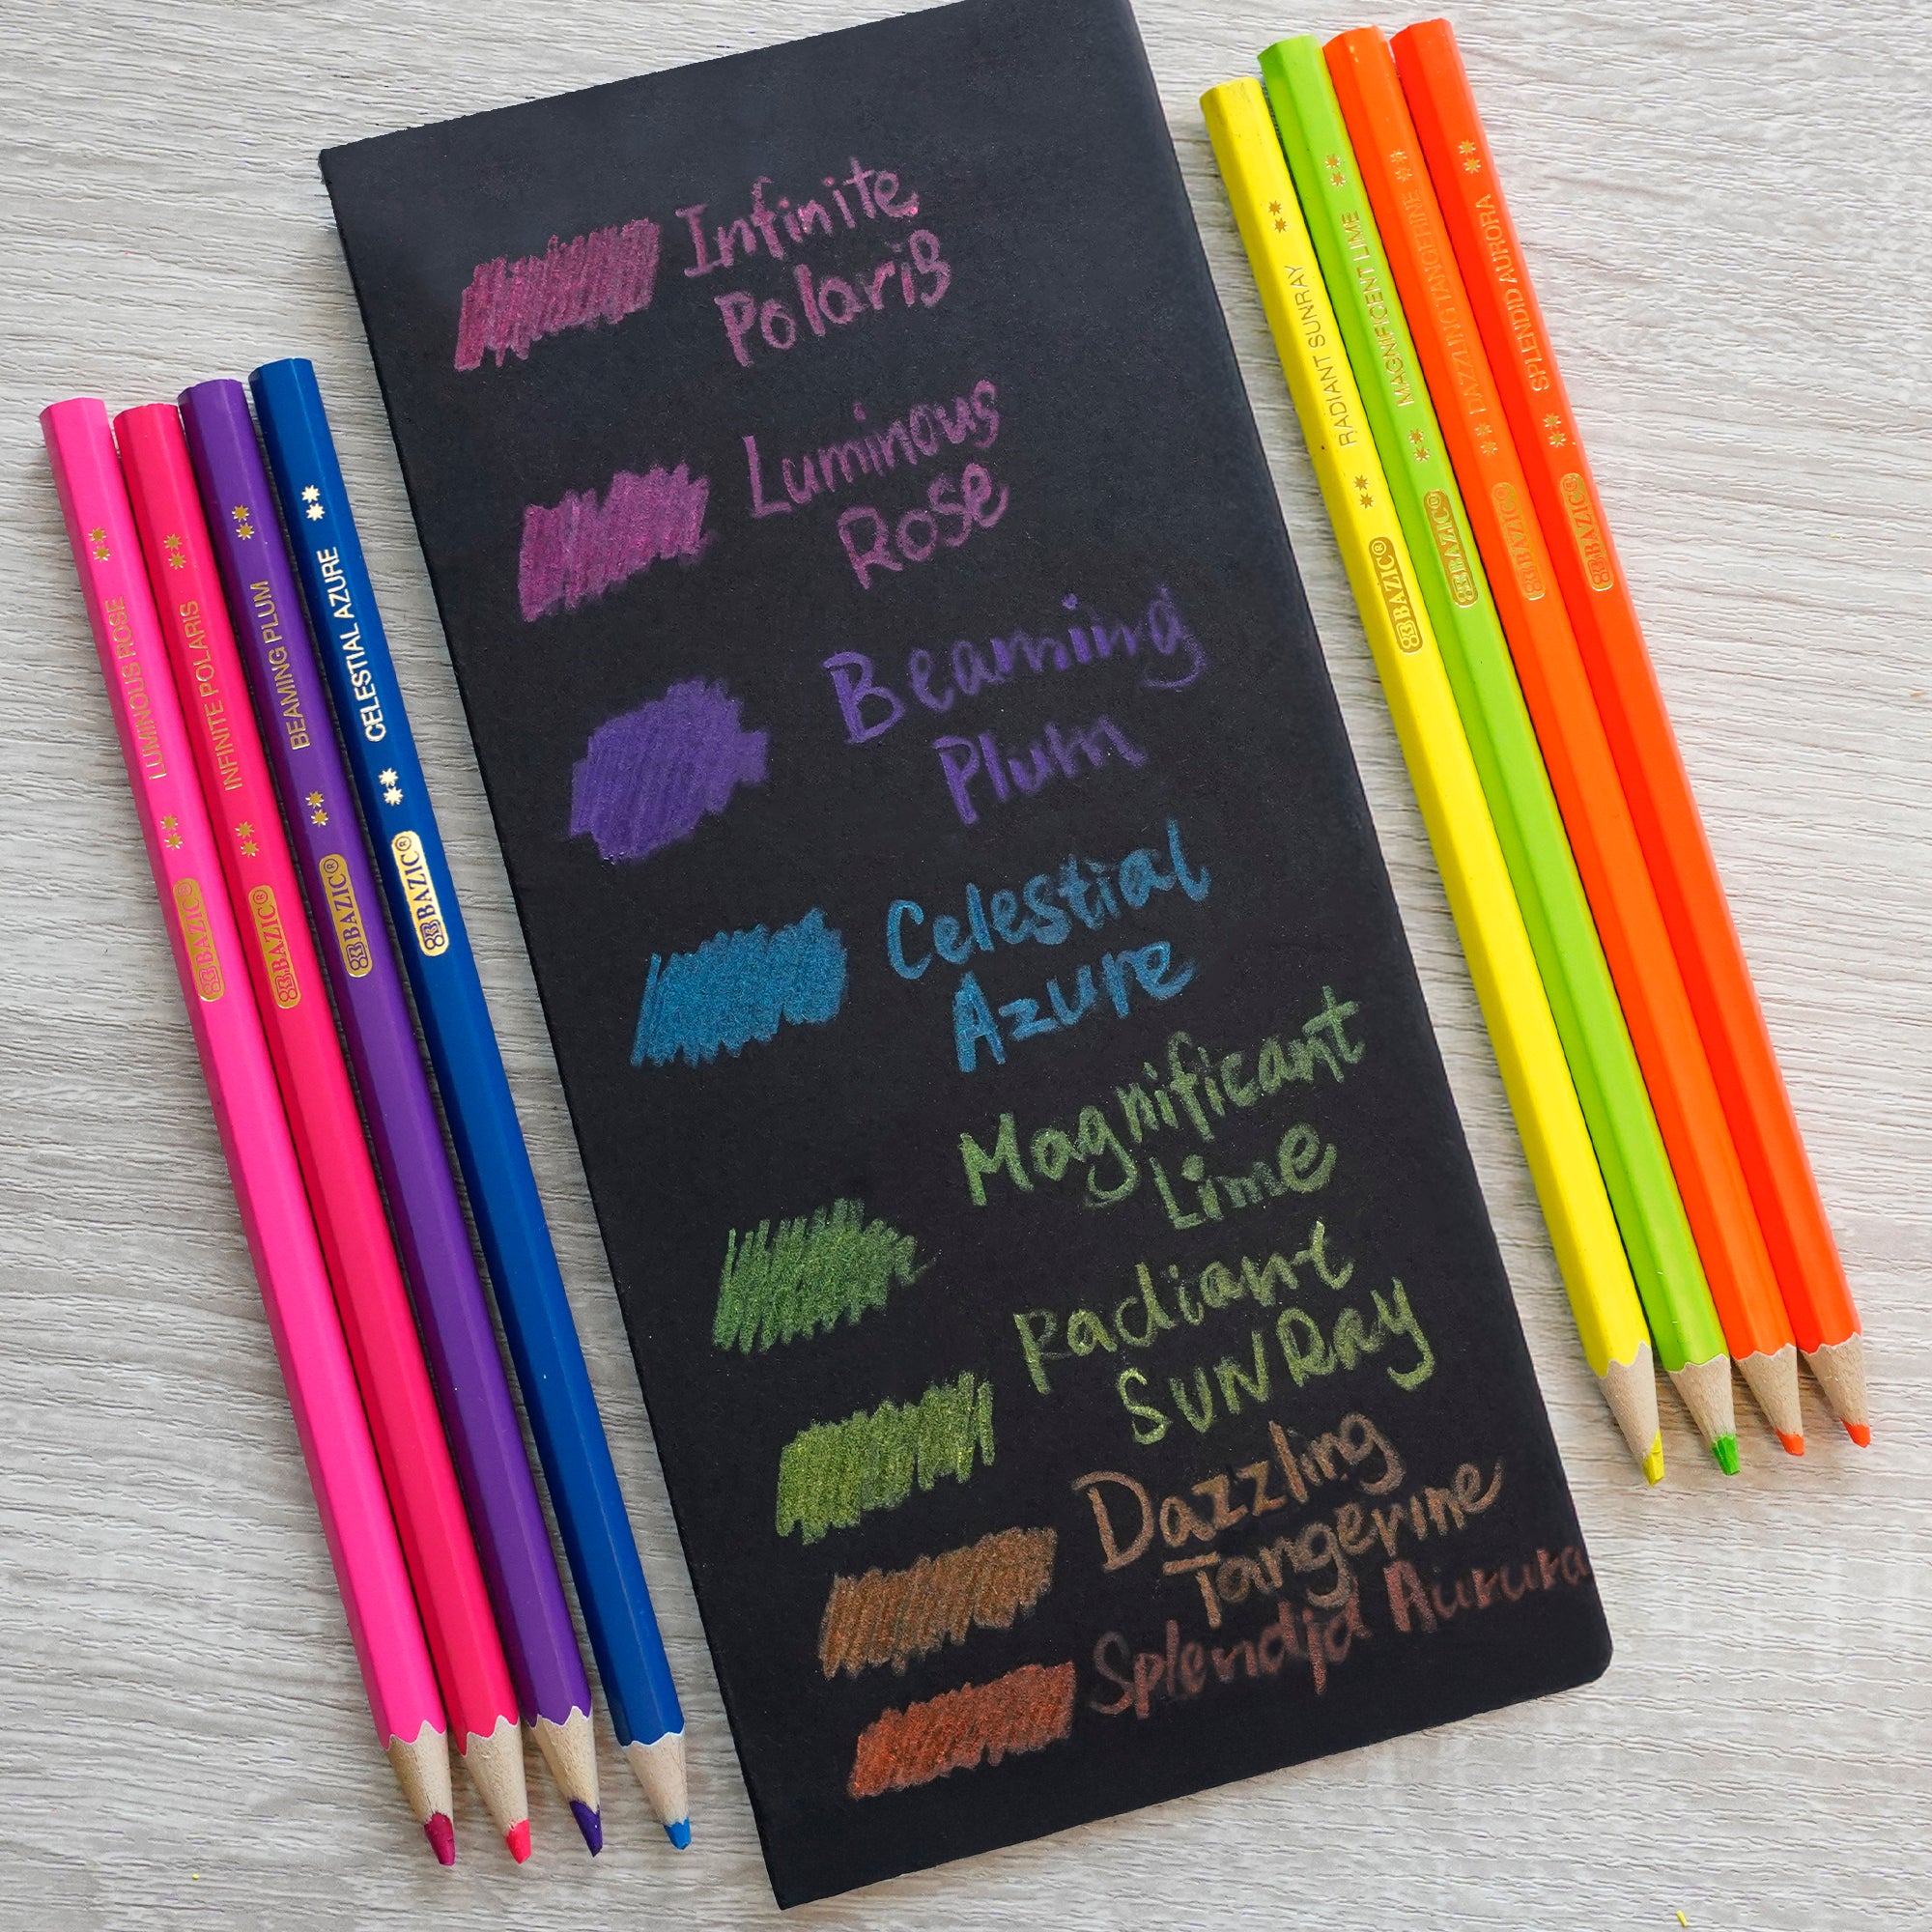 LUMINOUS ROSE
BAZIC®
INFINITE POLARIS
BAZIC®
BEAMING PLUM
BAZIC®
CELESTIAL AZURE
BAZIC®
Infinite
Polaris
Luminous
Rose
Beaming
Plum
Celestial
Azure
Magnificant
Lime
Radiant
SUNRay
Dazzling
Tangerine
Splendid Aurura
RADIANT SUNRAY
BAZIC®
MAGNIFICENT LIME
BAZIC®
DAZZLING TANGERINE
BAZIC®
SPLENDID AURORA
BAZIC®